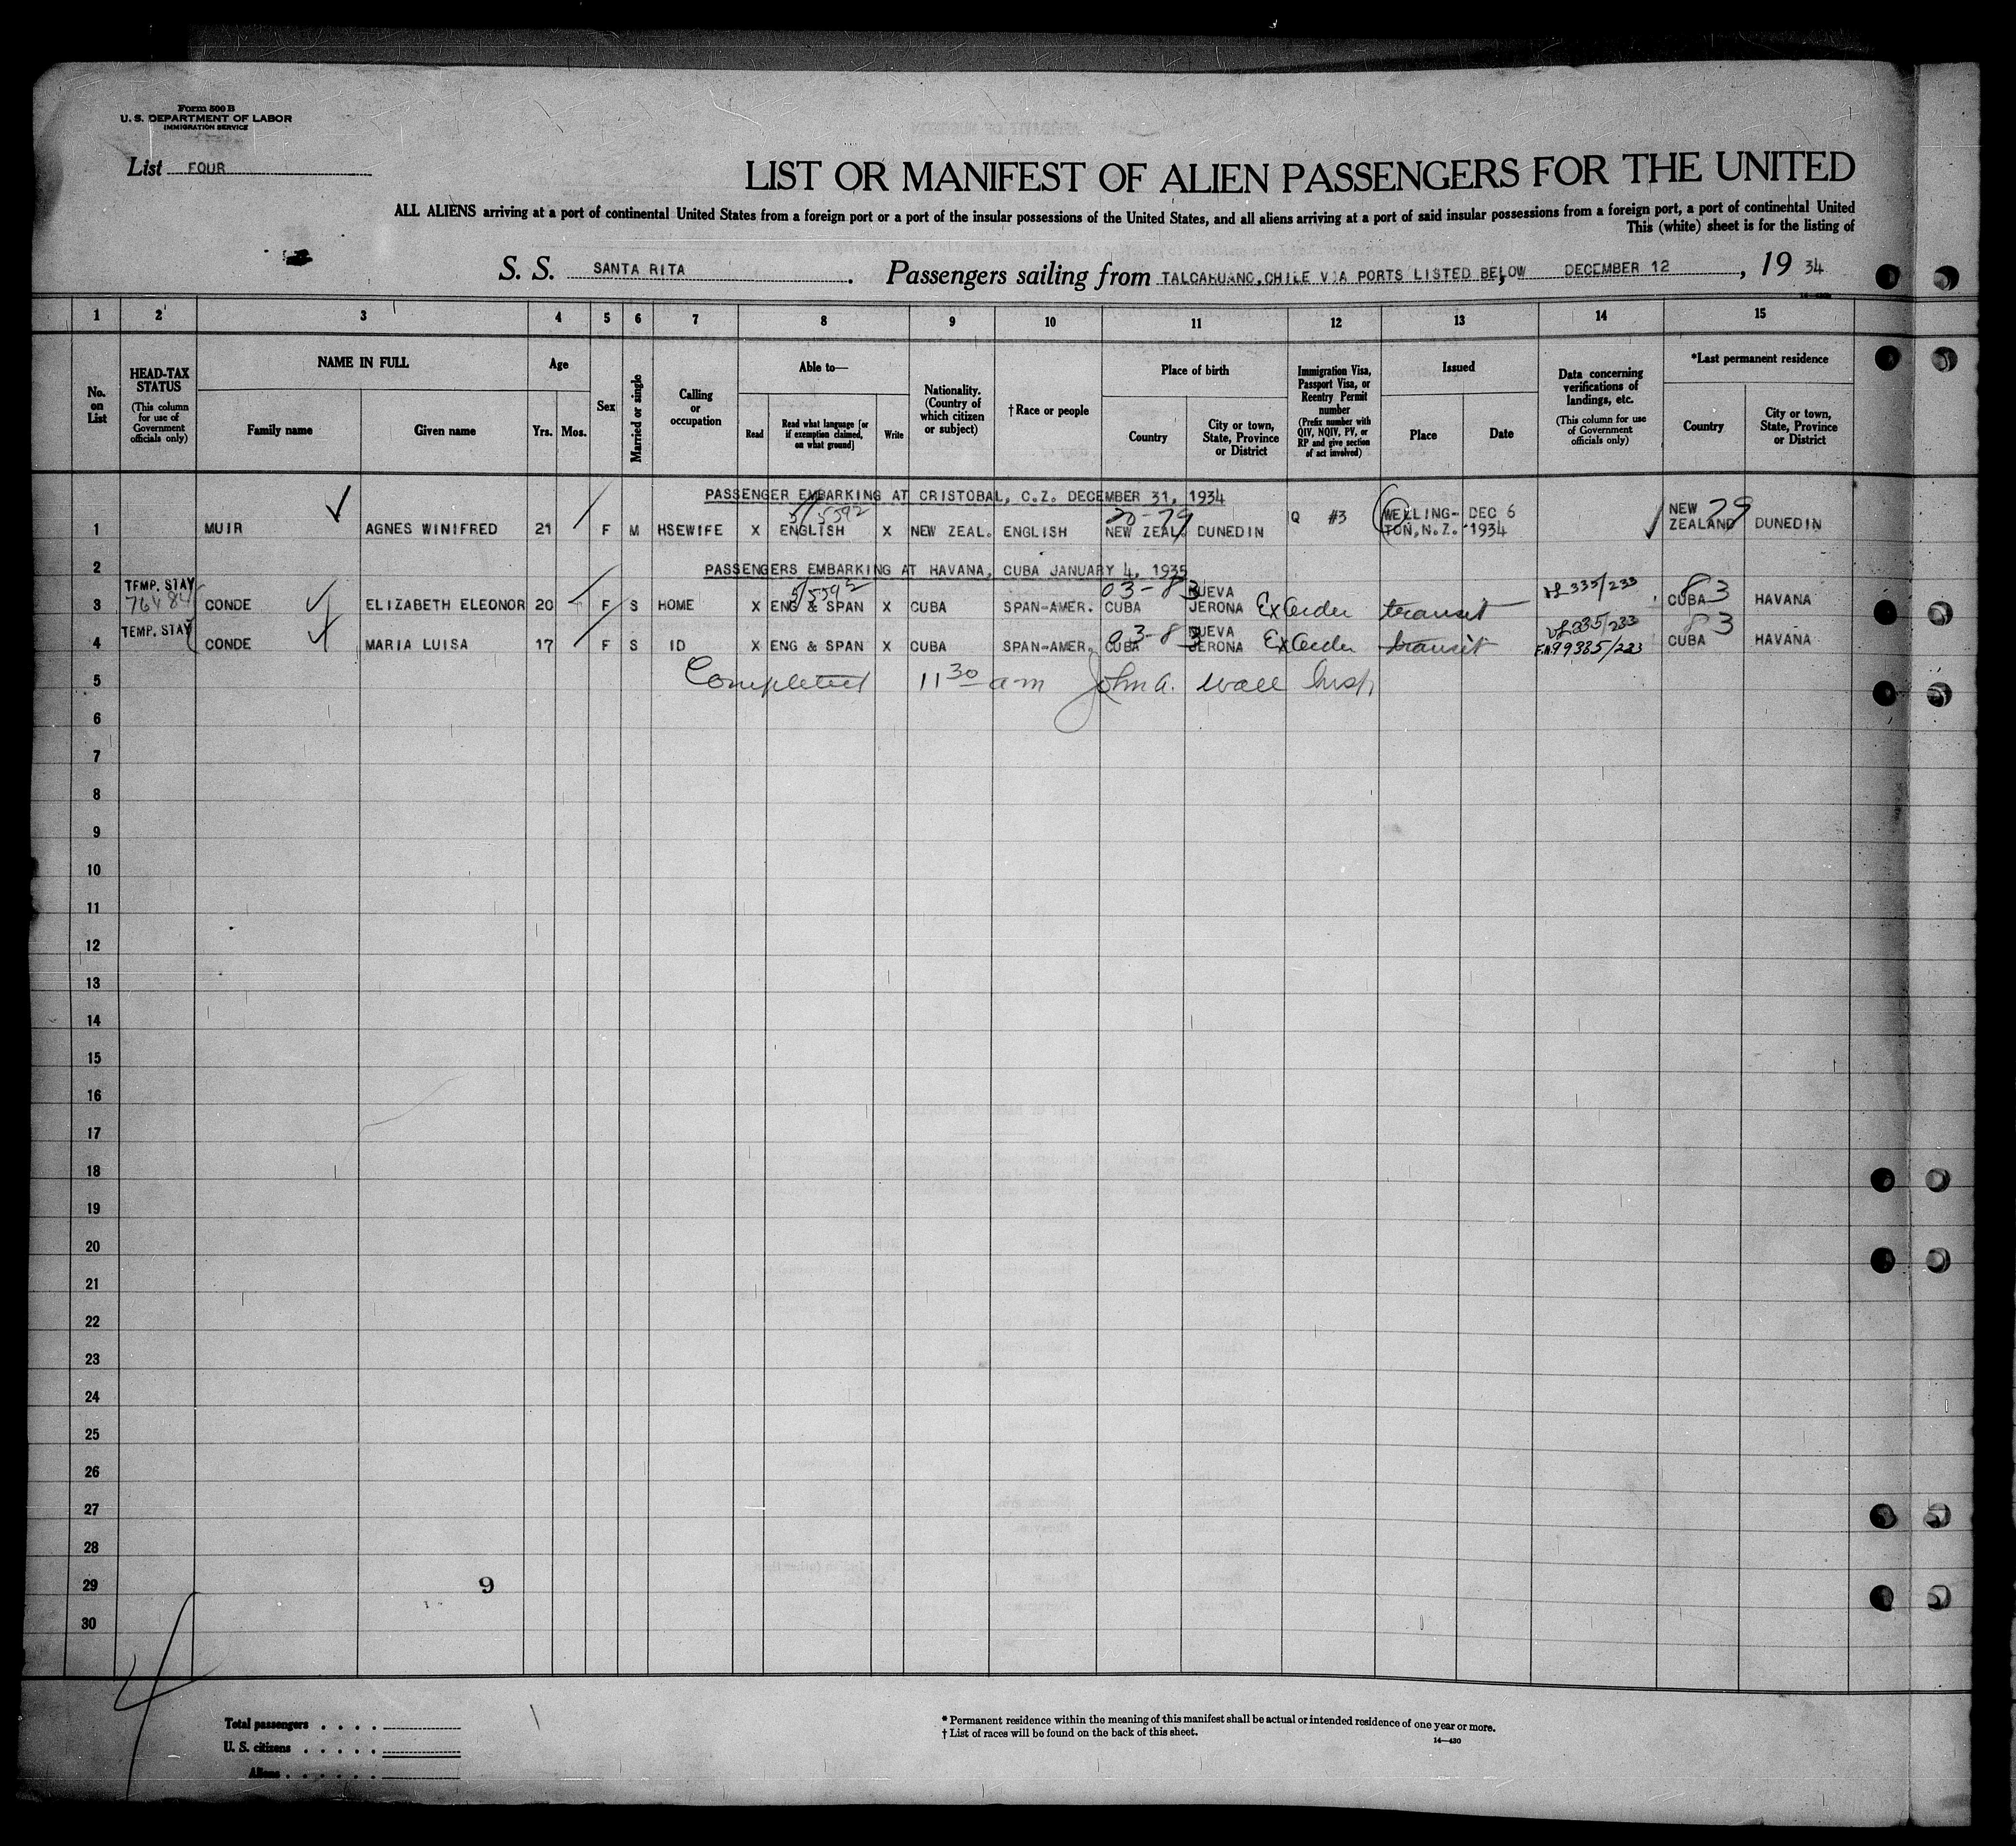 Form 500 B
U. S. DEPARTMENT OF LABOR
IMMIGRATION SERVICE
List FOUR
LIST OR MANIFEST OF ALIEN PASSENGERS FOR THE UNITED
ALL ALIENS arriving at a port of continental United States from a foreign port or a port of the insular possessions of the United States, and all aliens arriving at a port of said insular possessions from a foreign port, a port of continental United
This (white) sheet is for the listing of
S. S. SANTA RITA. Passengers sailing from TALCAHUANO, CHILE VIA PORTS LISTED BELOW, DECEMBER 12, 19 34
1 2 3 4 5 6 7 8 9 10 11 12 13 14 15
No. on List
HEAD-TAX STATUS
(This column for use of Government officials only)
NAME IN FULL
Family name
Given name
Age
Yrs. Mos.
Sex
Married or single
Calling or occupation
Able to—
Read
Read what language [or if exemption claimed, on what ground]
Write
Nationality. (Country of which citizen or subject)
†Race or people
Place of birth
Country
City or town, State, Province or District
Immigration Visa, Passport Visa, or Reentry Permit number
(Prefix number with QIV, NQIV, PV, or RP and give section of act involved)
Issued
Place
Date
Data concerning verifications of landings, etc.
(This column for use of Government officials only)
*Last permanent residence
Country
City or town, State, Province or District
PASSENGER EMBARKING AT CRISTOBAL, C.Z. DECEMBER 31, 1934
5/5592 20-79 79
1 MUIR AGNES WINIFRED 21 F M HSEWIFE X ENGLISH X NEW ZEAL. ENGLISH NEW ZEAL. DUNEDIN Q #3 WELLING-TON, N.Z. DEC 6 1934 NEW ZEALAND DUNEDIN
2 PASSENGERS EMBARKING AT HAVANA, CUBA JANUARY 4, 1935
TEMP. STAY 5/5592 03-83 335/233 83
3 CONDE ELIZABETH ELEONOR 20 F S HOME X ENG & SPAN X CUBA SPAN-AMER. CUBA NUEVA JERONA Ex Order transit CUBA HAVANA
TEMP. STAY 03-83 335/233 83
4 CONDE MARIA LUISA 17 F S ID X ENG & SPAN X CUBA SPAN-AMER. CUBA NUEVA JERONA Ex Order transit 99385/223 CUBA HAVANA
5 Completed 11 30 am John A. Wall Insp
6
7
8
9
10
11
12
13
14
15
16
17
18
19
20
21
22
23
24
25
26
27
28
29 9
30
Total passengers . . . .
U. S. citizens . . . . .
Aliens . . . . . .
* Permanent residence within the meaning of this manifest shall be actual or intended residence of one year or more.
† List of races will be found on the back of this sheet.
14—430